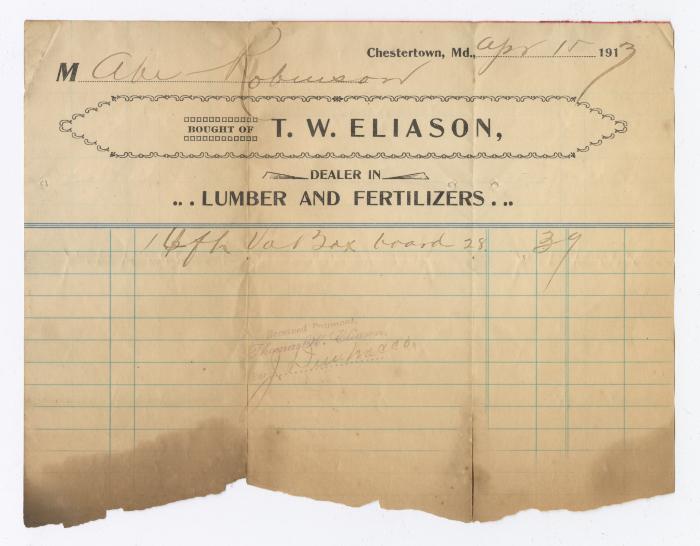 Chestertown, Md., Apr 15 1913
M Abe Robinson
BOUGHT OF T. W. ELIASON,
DEALER IN
... LUMBER AND FERTILIZERS ...
14 ft Va Box board 28 39
Received Payment,
Thomas W. Eliason